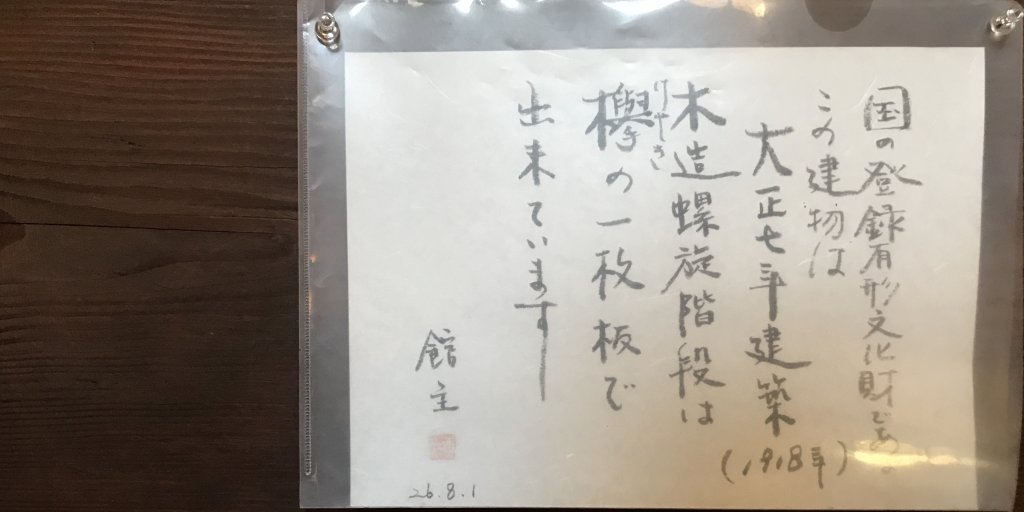 国の登録有形文化財である
この建物は
大正七年建築
(1918年)
木造螺旋階段は
けやき
欅の一枚板で
出来ています
館主
26.8.1